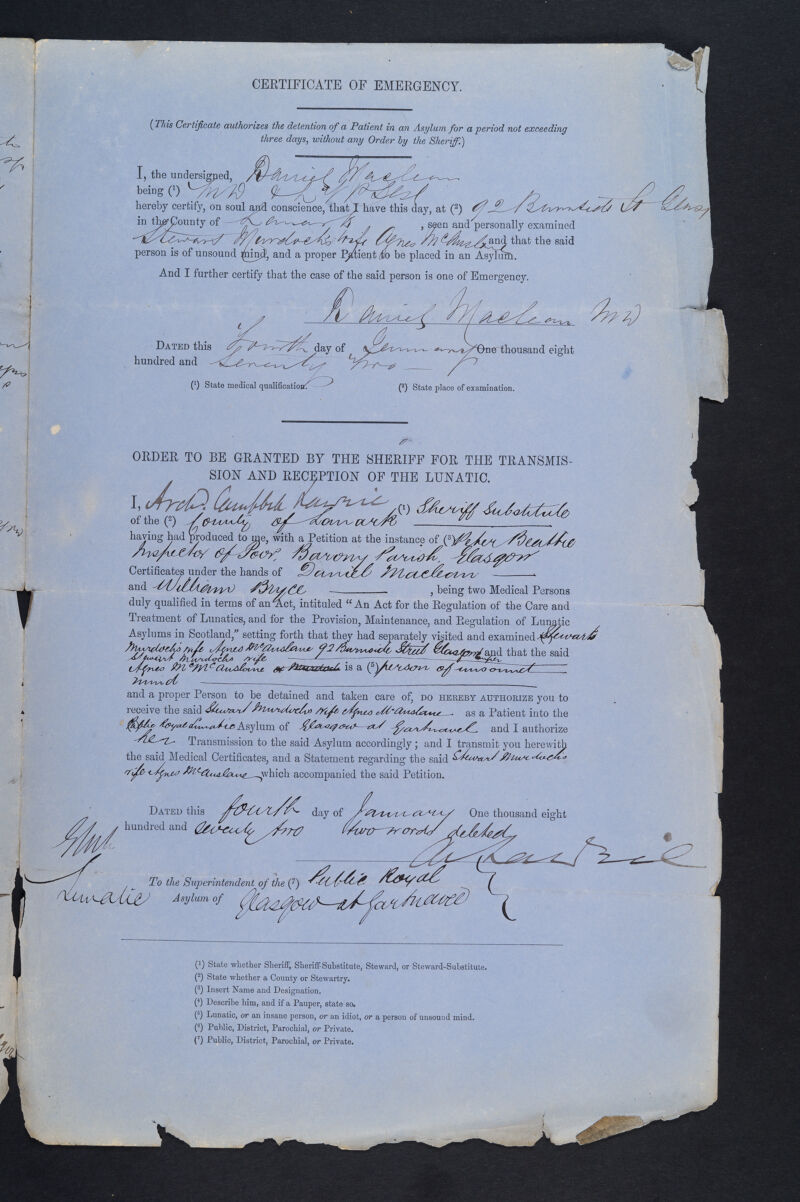 CERTIFICATE OF EMERGENCY.
(This Certificate authorizes the detention of a Patient in an Asylum for a period not exceeding
three days, without any Order by the Sheriff.)
I, the undersigned, Daniel Maclean
being (1) MD &
hereby certify, on soul and conscience, that I have this day, at (2) 92 Burnside St Glasg
in the County of Lanark, seen and personally examined
Stewart Murdochs wife Agnes McAuslane and that the said
person is of unsound mind, and a proper Patient to be placed in an Asylum.
And I further certify that the case of the said person is one of Emergency.
Daniel Maclean MD
DATED this Fourth day of January One thousand eight
hundred and Seventy two
(1) State medical qualification. (2) State place of examination.
ORDER TO BE GRANTED BY THE SHERIFF FOR THE TRANSMIS-
SION AND RECEPTION OF THE LUNATIC.
I, Archd. Campbell Lawrie (1) Sheriff Substitute
of the (2) County of Lanark
having had produced to me, with a Petition at the instance of (3) Peter Beattie
Inspector of Poor Barony Parish Glasgow
Certificates under the hands of Daniel Maclean
and William Bryce, being two Medical Persons
duly qualified in terms of an Act, intituled "An Act for the Regulation of the Care and
Treatment of Lunatics, and for the Provision, Maintenance, and Regulation of Lunatic
Asylums in Scotland," setting forth that they had separately visited and examined Stewart
Murdochs wife Agnes McAuslane 92 Burnside Street Glasgow and that the said
Stewart Murdochs wife
Agnes McAuslane or Murdoch is a (5) person of unsound
mind
and a proper Person to be detained and taken care of, DO HEREBY AUTHORIZE you to
receive the said Stewart Murdochs wife Agnes McAuslane as a Patient into the
Public Royal Lunatic Asylum of Glasgow at Gartnavel and I authorize
her Transmission to the said Asylum accordingly; and I transmit you herewith
the said Medical Certificates, and a Statement regarding the said Stewart Murdochs
wife Agnes McAuslane which accompanied the said Petition.
DATED this fourth day of January One thousand eight
hundred and seventy two two words deleted
A C Lawrie
To the Superintendent of the (7) Public Royal
Lunatic Asylum of Glasgow at Gartnavel
(1) State whether Sheriff, Sheriff-Substitute, Steward, or Steward-Substitute.
(2) State whether a County or Stewartry.
(3) Insert Name and Designation.
(4) Describe him, and if a Pauper, state so.
(5) Lunatic, or an insane person, or an idiot, or a person of unsound mind.
(6) Public, District, Parochial, or Private.
(7) Public, District, Parochial, or Private.